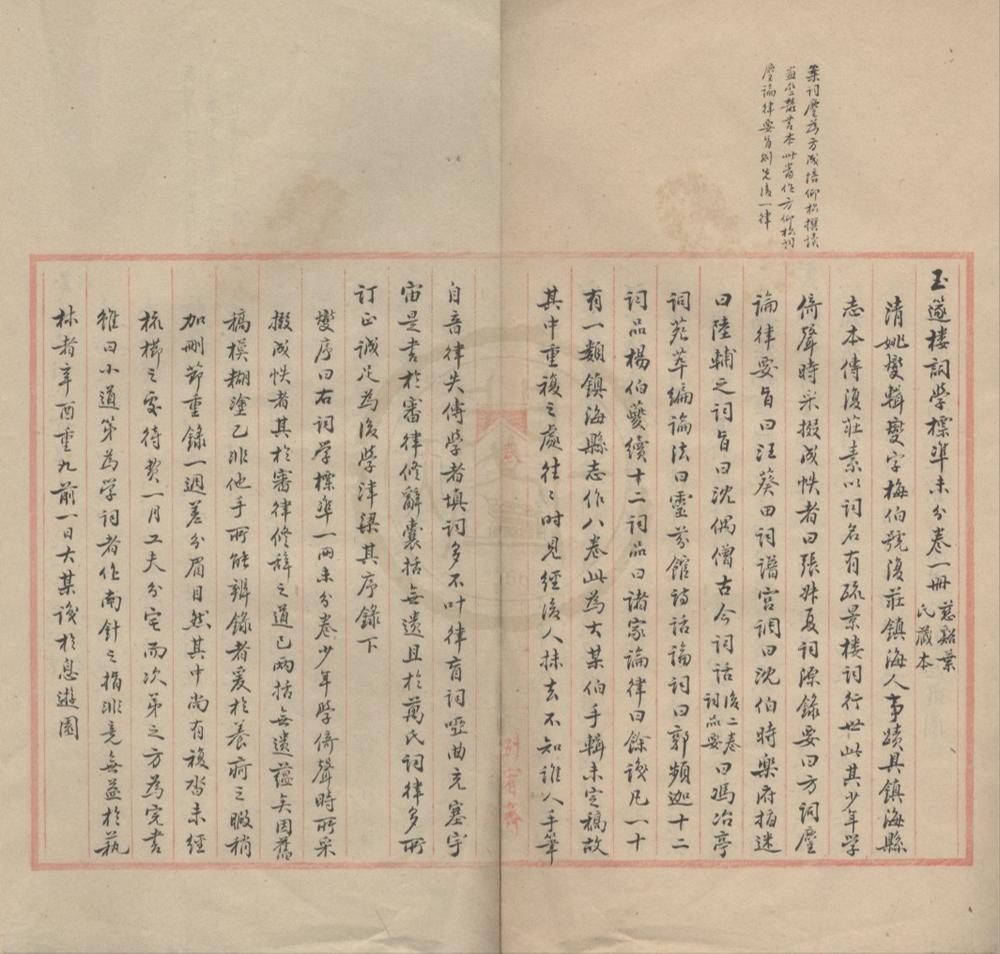 案詞麈為方成培仰松撰讀
畫齋叢書本此當作方仰松詞
麈論律要旨列先後一律
玉篴樓詞學標準未分卷一冊 慈谿葉氏藏本
清姚燮輯燮字梅伯號復莊鎮海人事蹟具鎮海縣
志本傳復莊素以詞名有疏景樓詞行世此其少年學
倚聲時采掇成帙者曰張叔夏詞源錄要曰方詞麈
論律要旨曰汪葵田詞譜宮調曰沈伯時樂府指迷
曰陸輔之詞旨曰沈偶僧古今詞話後二卷詞品要曰馮冶亭
詞苑萃編論法曰靈芬館詩話論詞曰郭頻迦十二
詞品楊伯夔續十二詞品曰諸家論律曰餘談凡一十
有一類鎮海縣志作八卷此為大某伯手輯未定稿故
其中重複之處往往時見經後人抹去不知誰人手筆
自音律失傳學者填詞多不叶律肓詞啞曲充塞宇
宙是書於審律修辭囊括無遺且於萬氏詞律多所
訂正誠足為後學津梁其序錄下
燮序曰右詞學標準一冊未分卷少年學倚聲時所采
掇成帙者其於審律修辭之道已兩括無遺蘊矣因舊
稿模糊塗乙非他手所能辨錄者爰於養疴之暇稍
加刪節重錄一過差分眉目然其中尚有複沓未經
梳櫛之處待費一月工夫分宅而次第之方為完書
雖曰小道第為學詞者作南針之指非竟無益於藝
林者辛酉重九前一日大某識於息遊園